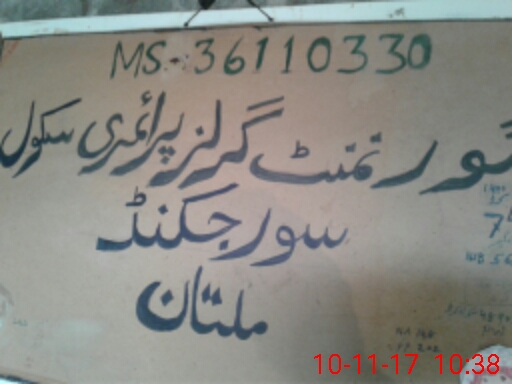 MS-36110330
گورنمنٹ گرلز پرائمری سکول
سورجکنڈ
ملتان
10-11-17 10:38